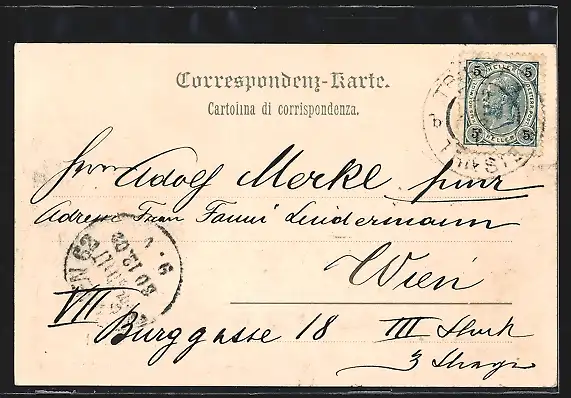 Correspondenz-Karte.
Cartolina di corrispondenza.
5 HELLER 5
5 HELLER 5
Herrn Adolf Merkl junr
Adresse Frau Fanni Lindermann
Wien
VII Burggasse 18 III Stock
3 Stiege
WIEN 62
30.12.02
9. V